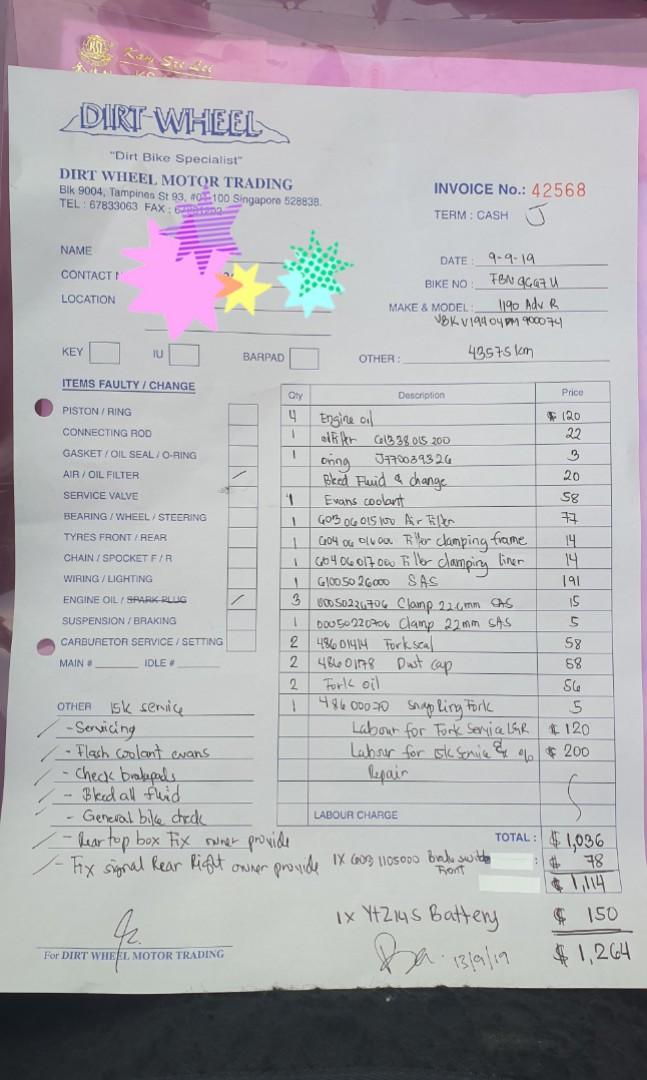 Kam Sze Lei
DIRT WHEEL
"Dirt Bike Specialist"
DIRT WHEEL MOTOR TRADING
Blk 9004, Tampines St 93, #01-100 Singapore 528838.
TEL : 67833063 FAX :
INVOICE No.: 42568
TERM : CASH
NAME
CONTACT
LOCATION
DATE : 9-9-19
BIKE NO :
MAKE & MODEL : 1190 Adv R
OTHER : 43575 km
KEY
IU
BARPAD
ITEMS FAULTY / CHANGE
PISTON / RING
CONNECTING ROD
GASKET / OIL SEAL / O-RING
AIR / OIL FILTER
SERVICE VALVE
BEARING / WHEEL / STEERING
TYRES FRONT / REAR
CHAIN / SPOCKET F / R
WIRING / LIGHTING
ENGINE OIL / SPARK PLUG
SUSPENSION / BRAKING
CARBURETOR SERVICE / SETTING
MAIN # IDLE #
Qty Description Price
4 Engine oil $ 120
1 oilfilter 61338015200 22
1 oring J770039326 3
Bleed Fluid & change 20
1 Evans coolant 58
1 60306015100 Air Filter 77
1 60406016000 Filter clamping frame 14
1 60406017000 Filter clamping liner 14
1 61005026000 SAS 191
3 00050226706 Clamp 22.6mm SAS 15
1 00050220706 Clamp 22mm SAS 5
2 48601414 Forkseal 58
2 48601178 Dust cap 58
2 Fork oil 56
1 Snap Ring Fork 5
Labour for Fork Service L&R $ 120
Labour for 15k Service & $ 200
Repair
LABOUR CHARGE
OTHER 15k service
- Servicing
- Flash coolant evans
- Check brakepads
- Bleed all fluid
- General bike check
- Rear top box Fix owner provide
- Fix signal Rear Right owner provide
TOTAL : $ 1,036
1X 60311105000 Brake switch : $ 78
Front
$ 1,114
1x YTZ14S Battery $ 150
13/9/19 $ 1,264
For DIRT WHEEL MOTOR TRADING